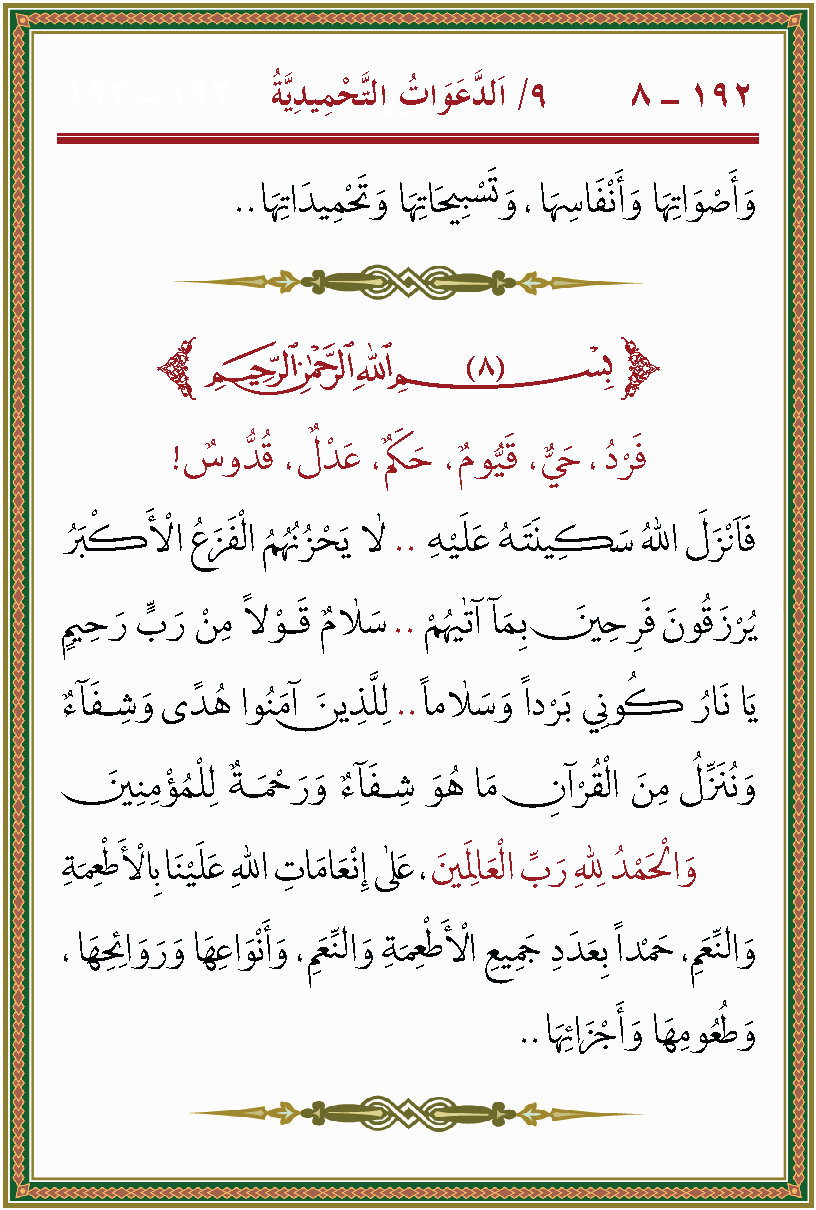 ١٩٢ – ٨ ٩/ اَلدَّعَوَاتُ التَّحْمِيدِيَّةُ ١٩٢ – ١٩٢
وَأَصْوَاتِهَا وَأَنْفَاسِهَا ، وَتَسْبِيحَاتِهَا وَتَحْمِيدَاتِهَا ..
بِسْـــمِ (٨) اللهِ الرَّحْمٰنِ الرَّحِيمِ
فَرْدُ ، حَيُّ ، قَيُّومٌ ، حَكَمٌ ، عَدْلٌ ، قُدُّوسٌ !
فَاَنْزَلَ اللهُ سَكِينَتَهُ عَلَيْهِ .. لاٰ يَحْزُنُهُمُ الْفَزَعُ الْأَكْبَرُ
يُرْزَقُونَ فَرِحِينَ بِمَآ آتٰيهُمْ .. سَلاٰمٌ قَوْلاً مِنْ رَبٍّ رَحِيمٍ
يَا نَارُ كُونِي بَرْداً وَسَلاٰماً .. لِلَّذِينَ آمَنُوا هُدًى وَشِفَآءٌ
وَنُنَزِّلُ مِنَ الْقُرْآنِ مَا هُوَ شِفَآءٌ وَرَحْمَةٌ لِلْمُؤْمِنِينَ
وَالْحَمْدُ لِلهِ رَبِّ الْعَالَمِينَ ، عَلٰى إِنْعَامَاتِ اللهِ عَلَيْنَا بِالْأَطْعِمَةِ
وَالنِّعَمِ ، حَمْداً بِعَدَدِ جَمِيعِ الْأَطْعِمَةِ وَالنِّعَمِ ، وَأَنْوَاعِهَا وَرَوَائِحِهَا ،
وَطُعُومِهَا وَأَجْزَائِهَا ..